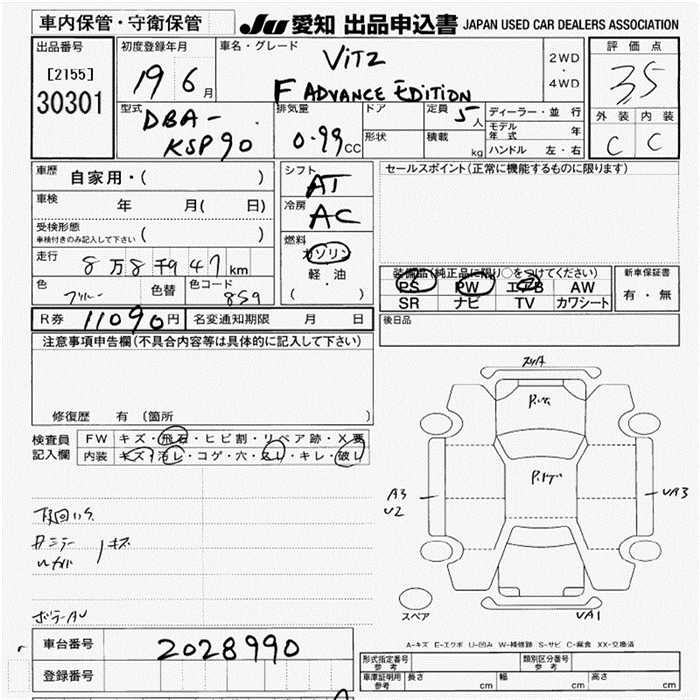 車内保管・守衛保管 JU 愛知 出品申込書 JAPAN USED CAR DEALERS ASSOCIATION
出品番号 初度登録年月 車名・グレード 評価点
[2155] 30301 19 6月 VITZ 2WD・4WD 3.5
F ADVANCE EDITION
型式 排気量 ドア 定員 5人 ディーラー・並行 外装 内装
DBA-KSP90 0.99cc 形状 積載 kg モデル年式 年 C C
ハンドル 左・右
車歴 自家用・( ) シフト AT セールスポイント(正常に機能するものに限ります)
車検 年 月( 日) 冷房 AC
受検形態 車検付きのみ記入して下さい ( ) 燃料 ガソリン
走行 8万8千947km 軽油 装備品(純正品に限り○をつけてください) 新車保証書
色 ブルー 色替 色コード 8S9 ( ) PS PW エアB AW 有・無
SR ナビ TV カワシート
R券 11090円 名変通知期限 月 日 後日品
注意事項申告欄(不具合内容等は具体的に記入して下さい)
修復歴 有(箇所
検査員記入欄 FW キズ・飛石・ヒビ割・リペア跡・X要
内装 キズ・汚レ・コゲ・穴・スレ・キレ・破レ
A3 U2
UA3
キズ
スペア
UA1
A-キズ E-エクボ U-凹み W-補修跡 S-サビ C-腐食 XX-交換済
車台番号 2028990
登録番号
形式指定番号 参考 類別区分番号 参考
車庫証明用 参考 長さ cm 幅 cm 高さ cm